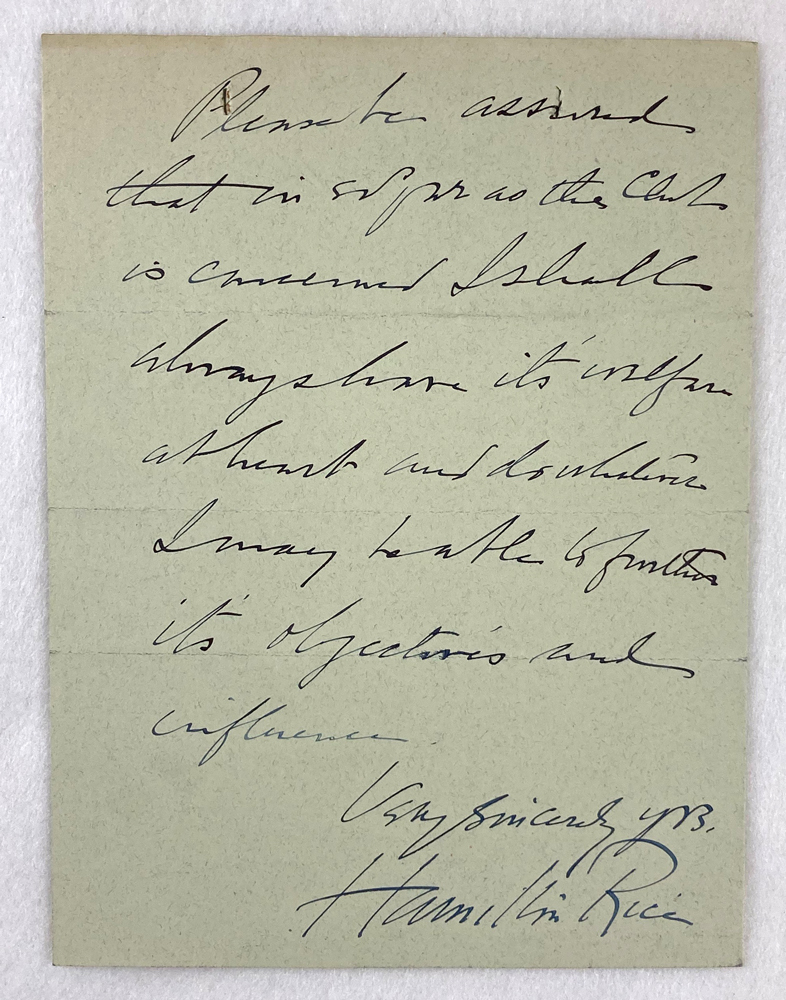 Please be assured
that in so far as the Club
is concerned I shall
always have it's welfare
at heart and do whatever
I may be able to further
it's objectives and
influence.
Very sincerely yrs.
Hamilton Rice